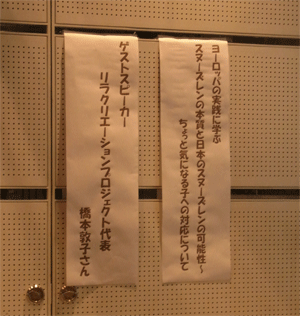 ヨーロッパの実践に学ぶ
スヌーズレンの本質と日本のスヌーズレンの可能性～
ちょっと気になる子への対応について
ゲストスピーカー
リラクリエーションプロジェクト代表
橋本敦子さん